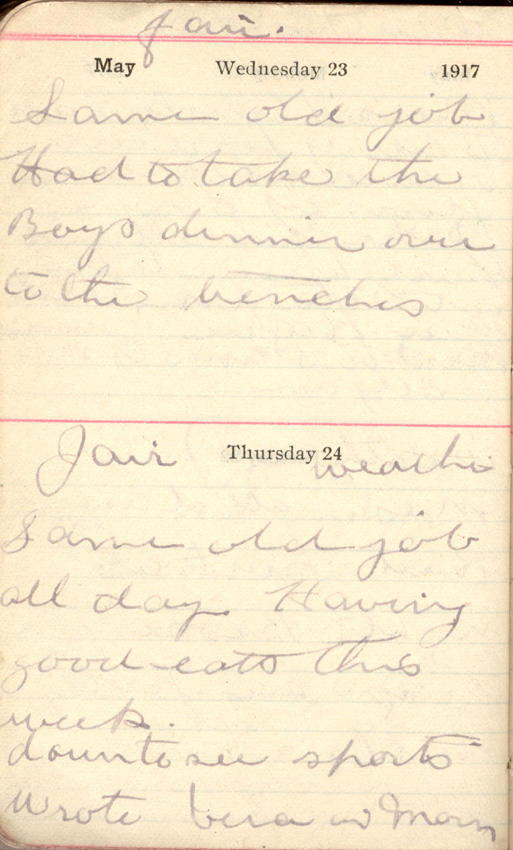 Fair.
May Wednesday 23 1917
Same old job
Had to take the
Boys dinner over
to the benches
Thursday 24
Fair weather
Same old job
all day. Having
good eats this
week.
down to see sports
wrote Vera & Mom